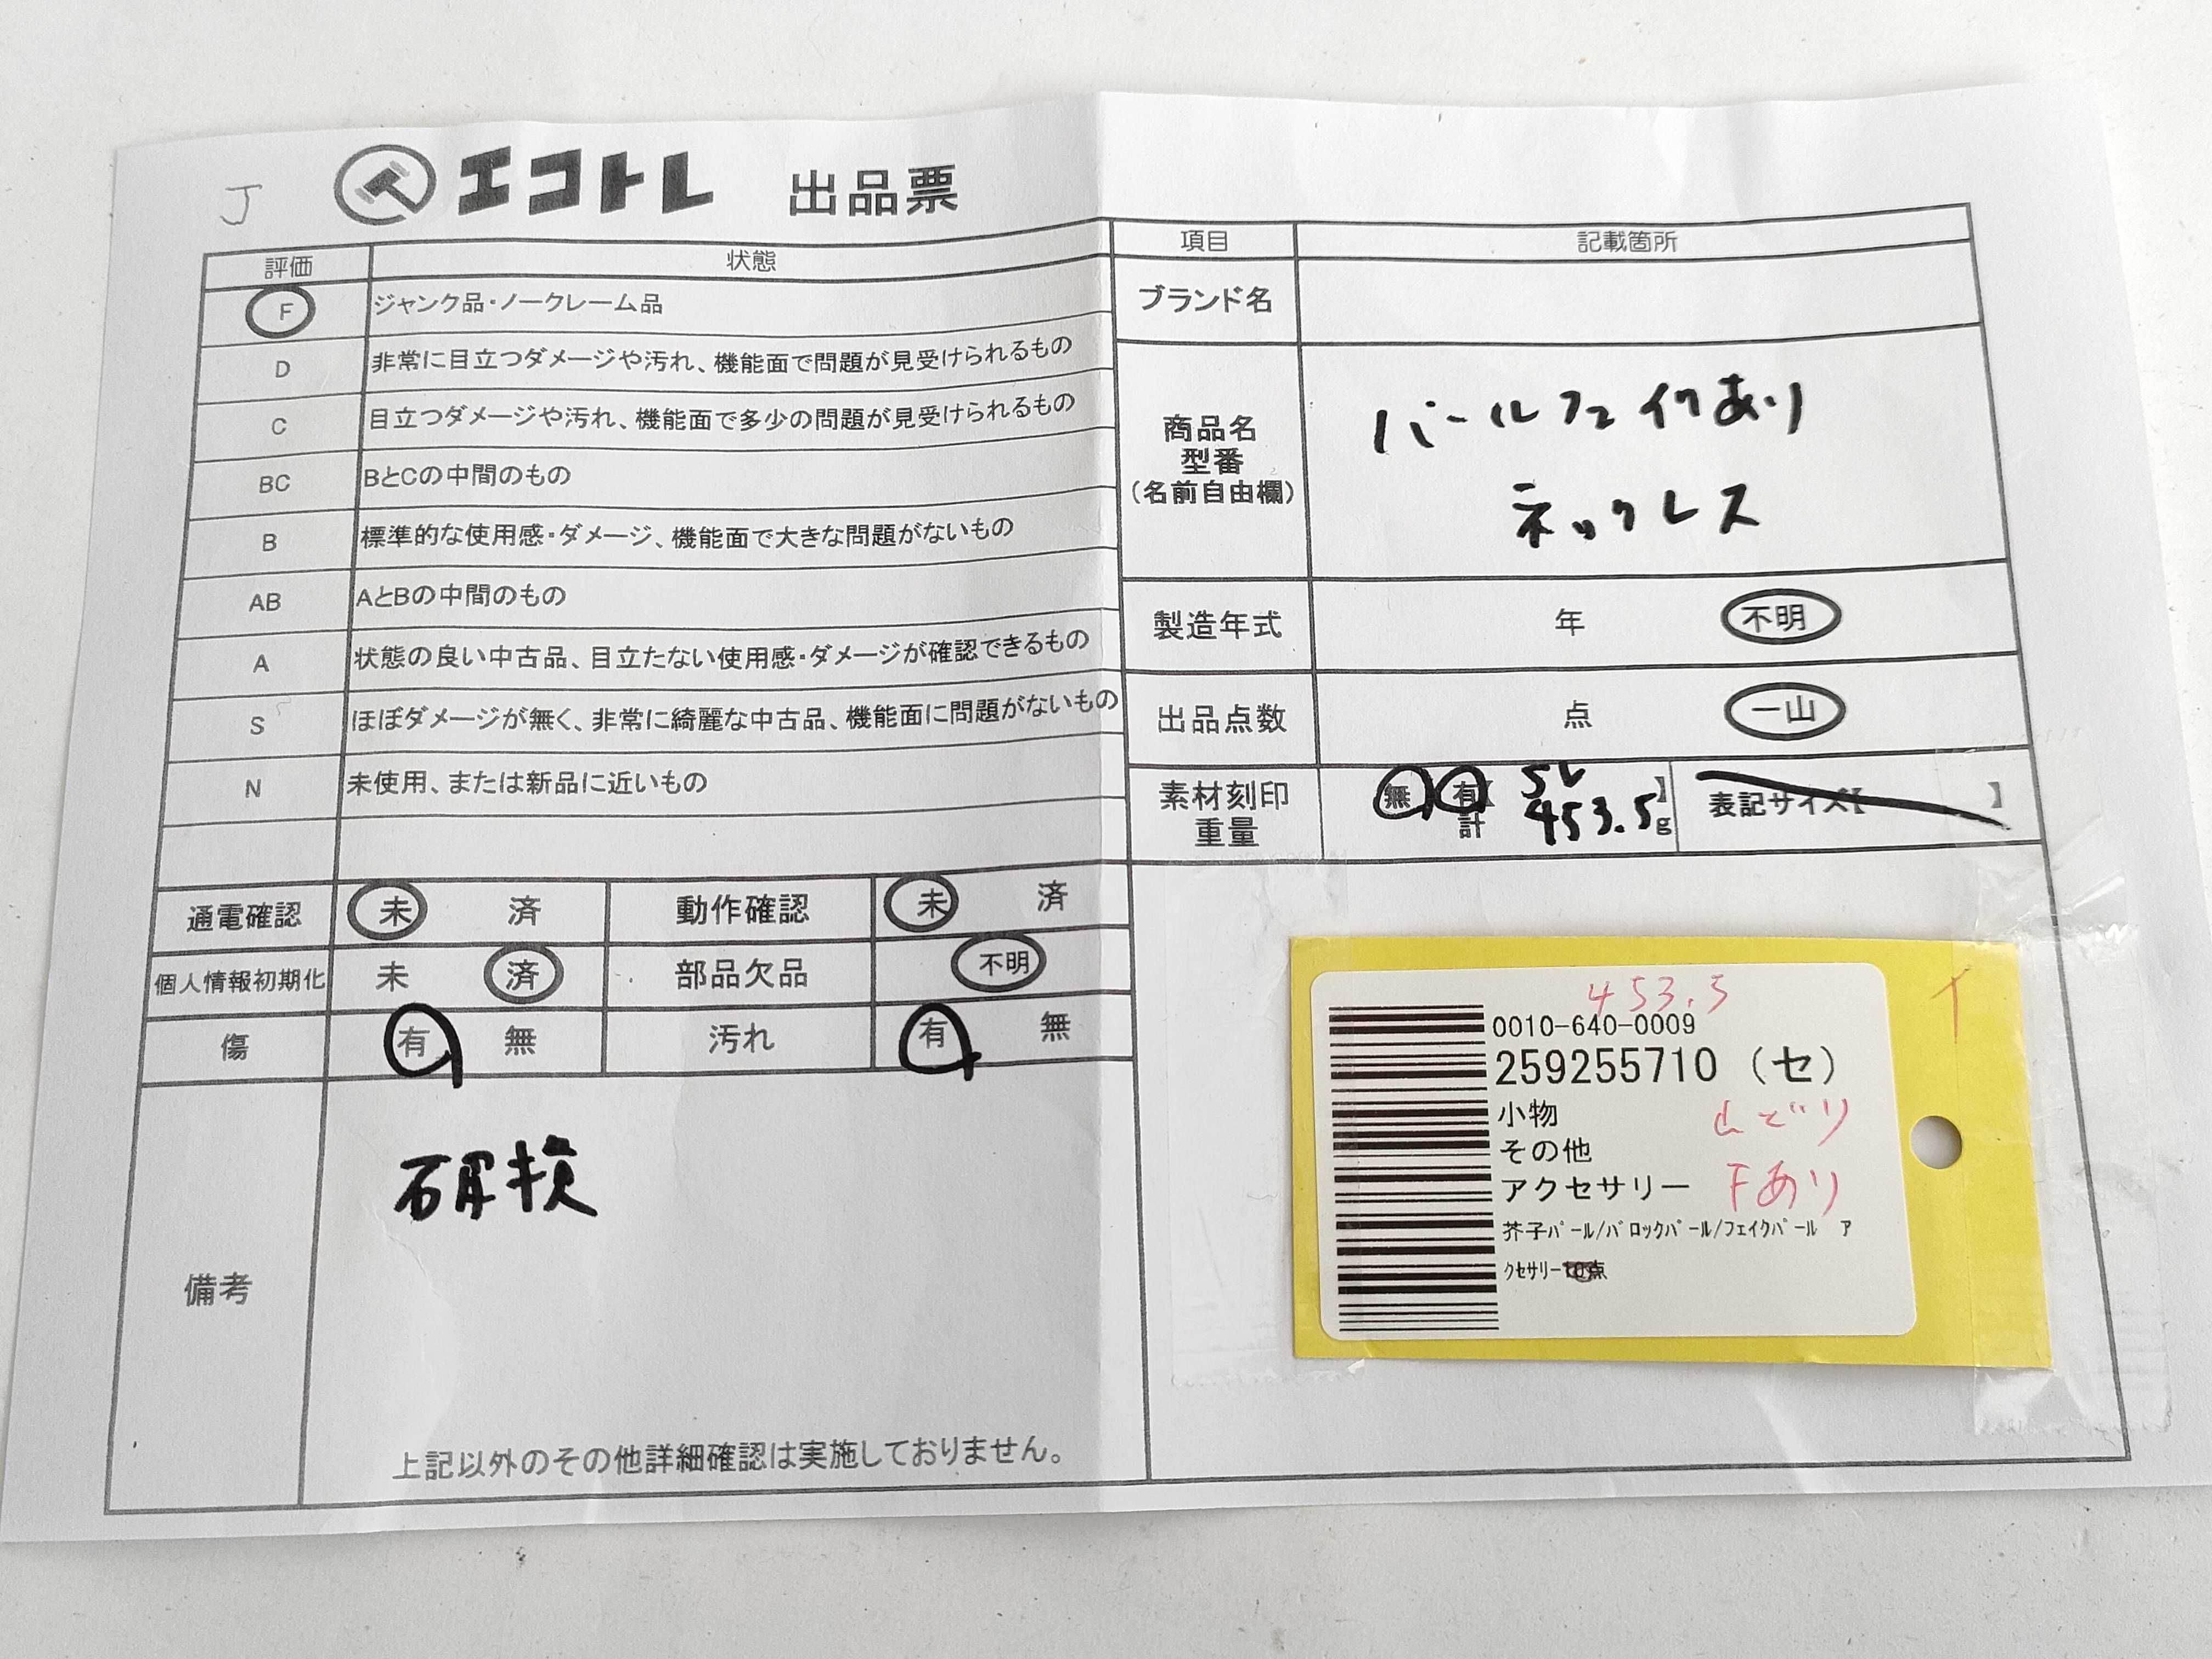 J エコトレ 出品票
評価 状態
F ジャンク品・ノークレーム品
D 非常に目立つダメージや汚れ、機能面で問題が見受けられるもの
C 目立つダメージや汚れ、機能面で多少の問題が見受けられるもの
BC BとCの中間のもの
B 標準的な使用感・ダメージ、機能面で大きな問題がないもの
AB AとBの中間のもの
A 状態の良い中古品、目立たない使用感・ダメージが確認できるもの
S ほぼダメージが無く、非常に綺麗な中古品、機能面に問題がないもの
N 未使用、または新品に近いもの
通電確認 未 済 動作確認 未 済
個人情報初期化 未 済 部品欠品 不明
傷 有 無 汚れ 有 無
備考
上記以外のその他詳細確認は実施しておりません。
項目 記載箇所
ブランド名
商品名
型番
(名前自由欄)
パールフェイクあり
ネックレス
製造年式 年 不明
出品点数 点 一山
素材刻印 無 有【 SV 】 表記サイズ【 】
重量 計 453.5g
453.5
0010-640-0009
259255710 (セ)
小物
その他
アクセサリー Fあり
芥子ﾊﾟｰﾙ/ﾊﾞﾛｯｸﾊﾟｰﾙ/ﾌｪｲｸﾊﾟｰﾙ ｱ
ｸｾｻﾘｰ